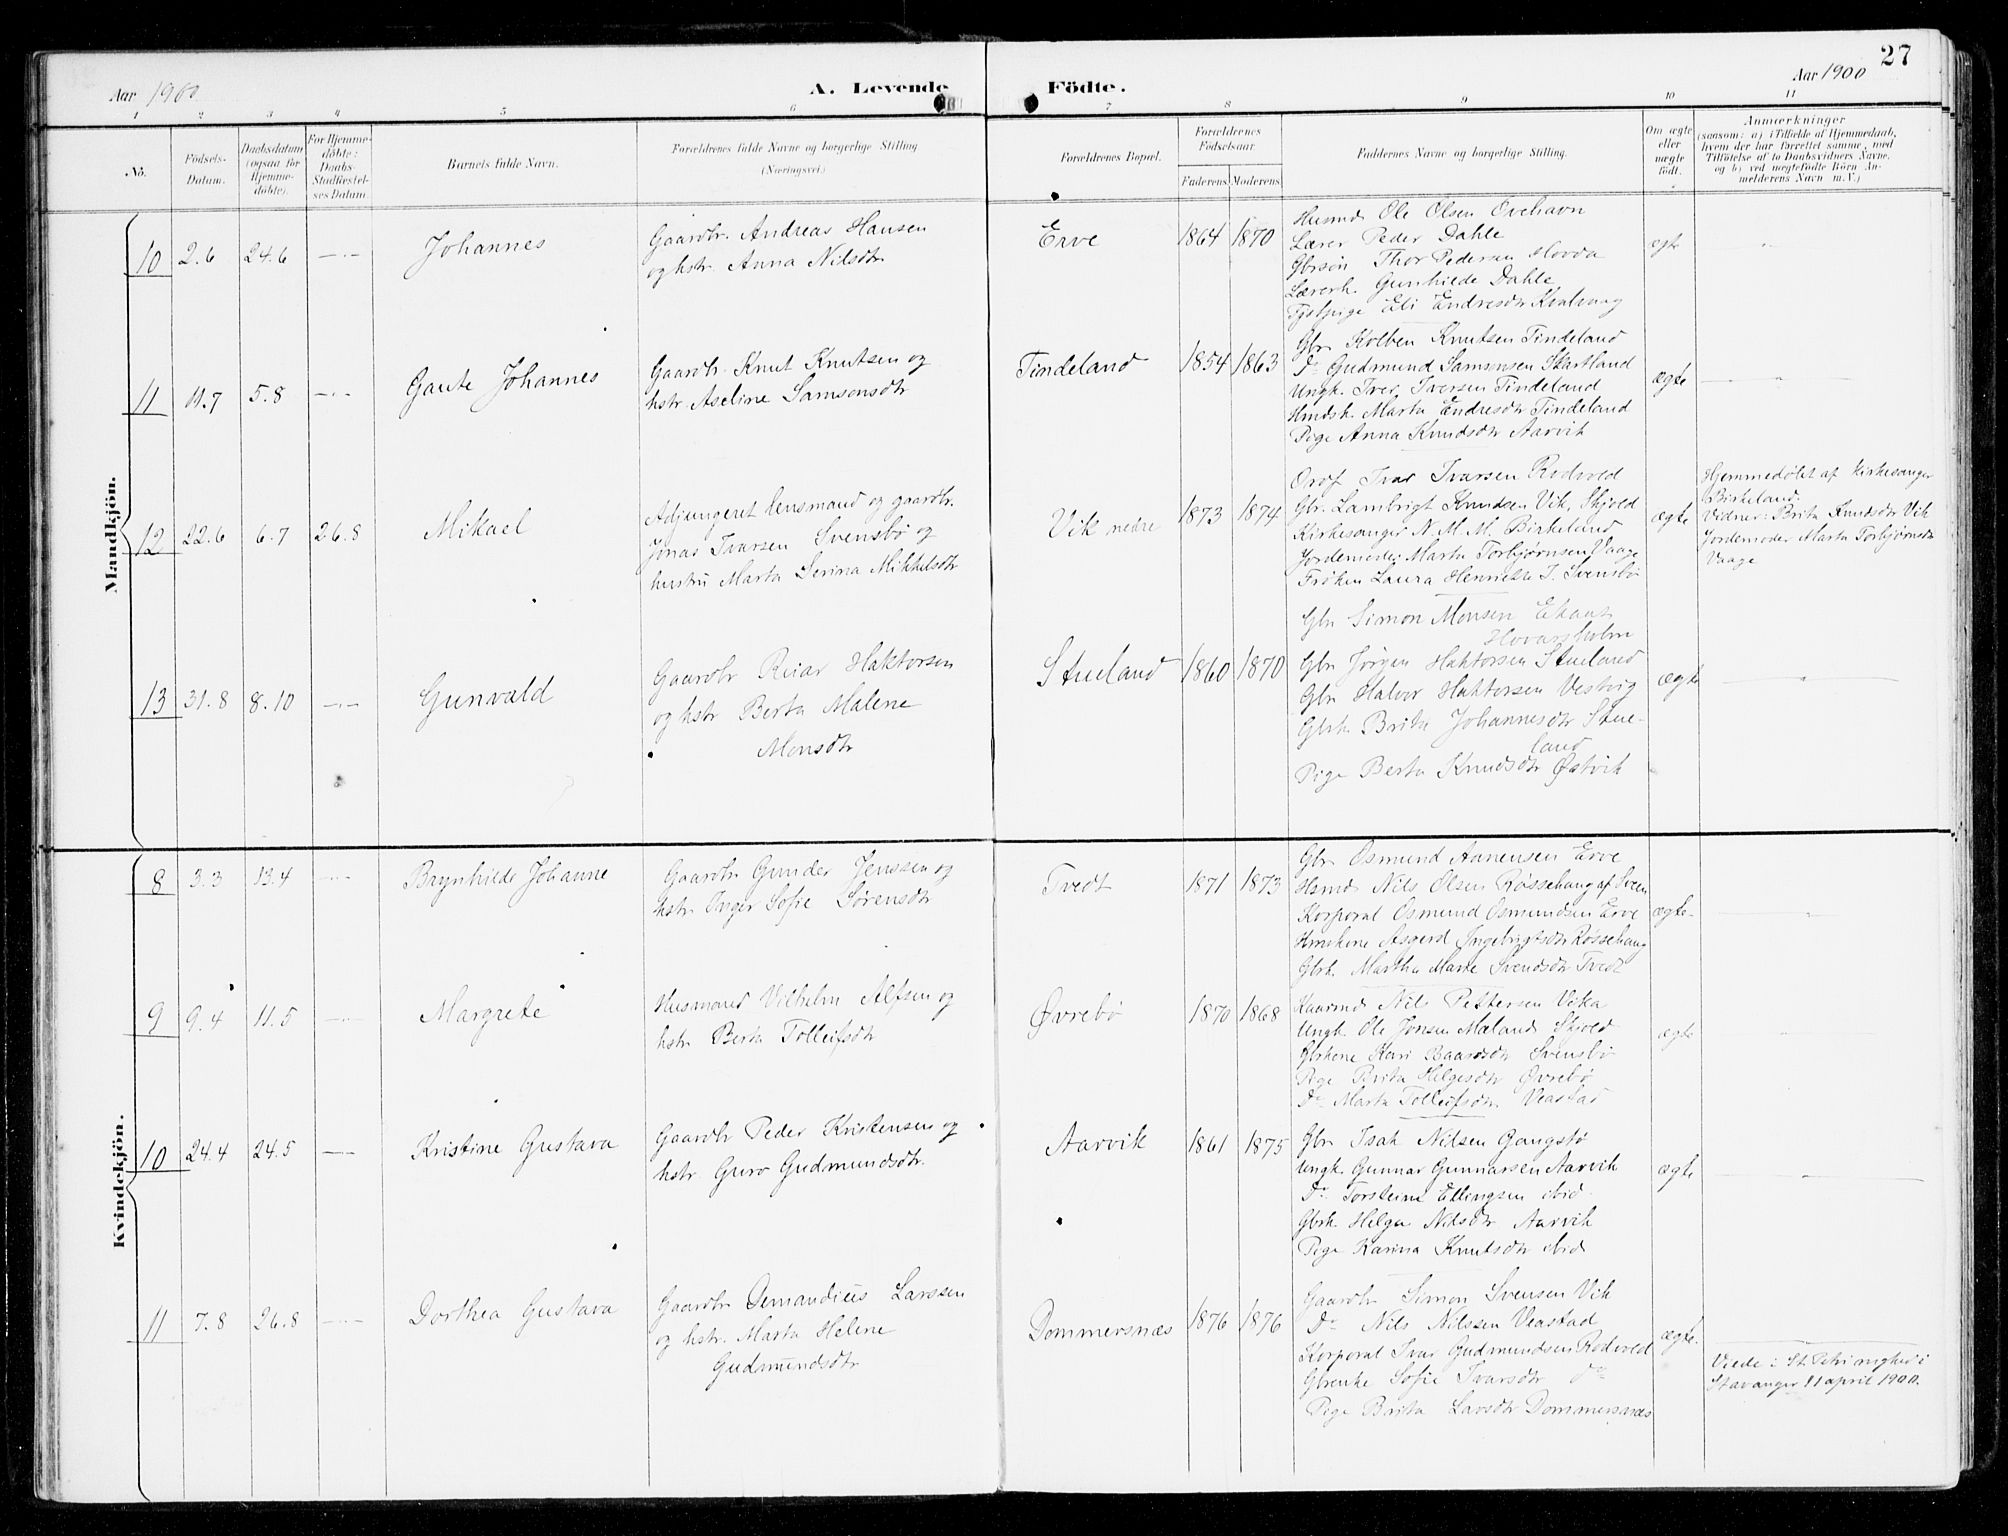 27
Aar 1900
A. Levende
Födte.
Aar 1900
1 2 3 4 5 6 7 8 9 10 11
No.
Födsels-
Datum.
Daabsdatum
(ogsaa for
Hjemme-
döbte).
For Hjemme-
döbte:
Daabs
Stadfæstel-
ses Datum.
Barnets fulde Navn.
Forældrenes fulde Navne og borgerlige Stilling
(Næringsvei.)
Forældrenes Bopæl.
Forældrenes
Födselsaar.
Faderens. Moderens.
Faddernes Navne og borgerlige Stilling.
Om ægte
eller
uægte
födt.
Anmærkninger
(saasom: a) i Tilfælde af Hjemmedaab,
hvem der har forrettet samme, med
Tilföielse af to Daabsvidners Navne,
og b) ved uægtefödte Börn An-
melderens Navn m.V.)
Mandkjön.
10 2.6 24.6 Johannes
Gaardbr. Andreas Hansen
og hstr. Anna Nilsdtr
Erve
1864 1870
Husmd Ole Olsen Evehavn
Lærer Peder Dahle
Gbrsøn Thor Pedersen Hovda
Lærerh. Gunhilde Dahle
Tjstpige Eli Endresdtr Kvalvaag
ægt
11 11.7 5.8 Gaute Johannes
Gaardbr. Knut Knutsen og
hstr. Aseline Samsonsdtr
Tindeland
1854 1863
Gbr. Kolben Knutsen Tindeland
Do Gudmund Samsonsen Skartland
Ungk. Iver Iversen Tindeland
Hmdsk. Marta Endresdtr Tindeland
Pige Anna Knudsdtr Aarvik
ægte
12 22.6 6.7 26.8 Mikael
Adjungeret lensmand og gaardbr.
Jonas Ivarsen Svensbø og
hustru Marta Serina Mikkelsdtr
Vik nedre
1873 1874
Ivar Ivarsen Rodveld
Gbr. Lambrigt Knudsen Vik, Skjold
Kirkesanger N. M. M. Birkeland
Jordemoder Marta Torbjørnsen Vaage
Frøken Laura Henriette I. Svensbø
ægte
Hjemmedøbt af kirkesanger
Birkeland.
Vidner: Brita Knudsdtr Vik
Jordemoder Marta Torbjørnsdtr
Vaage
13 31.8 8.10 Gunvald
Gaardbr Haktorsen
og hstr Berta Malene
Monsdtr
Stueland
1860 1870
Gbr Simon Monsen
Gbr Jørgen Haktorsen Stueland
Gbr Halvor Haktorsen Vestvig
Gbrk Brita Johannesdtr Stue-
land
Pige Berta Knudsdtr Østvik
ægte
Kvindekjön.
8 3.3 13.4 Brynhilde Johanne
Gaardbr Gunder Jenssen og
hstr. Inger Sofie Sørensdtr
Tvedt
1871 1873
Gbr Osmund Aanensen Erve
Hsmd Nils Olsen Røssehaug af Sveen
Korporal Osmund Osmundsen Erve
Hmskone Asgerd Ingebrigtsdtr Røssehaug
Gbrk. Martha Marie Svendsdtr Tvedt
ægte
9 9.4 11.5 Margrete
Husmand Vilhelm Alfsen og
hstr Berta Tolleifsdtr
Øvrebø
1870 1868
Kaarmd Nils Pettersen Vika
Ungk. Ole Jonsen Mæland Skjold
Gbrkone Kari Baardsdtr Svensbø
Pige Brita Helgesdtr Øvrebø
Do Marta Tolleifsdtr Veastad
ægte
10 24.4 24.5 Kristine Gustava
Gaardbr Peder Kristensen og
hstr. Guro Gudmundsdtr.
Aarvik
1861 1875
Gbr. Isak Nilsen Gangstø
Ungk. Gunnar Gunnarsen Aarvik
Do. Torsteine Ellingsen ibid.
Gbrk. Helga Nilsdtr Aarvik
Pige Karina Knutsdtr ibid
ægte
11 7.8 26.8 Dorthea Gustava
Gaardbr Demandius Larssen
og hstr. Marta Helene
Gudmundsdtr
Dommersnæs
1876 1876
Gaardbr Simon Svensen Vik
Do Nils Nilssen Veastad
Korporal Ivar Gudmundsen Rodveld
Gbrenke Sofie Ivarsdtr do
Pige Brita Larsdtr Dommersnæs
ægte.
Viede i St. Petri mghed i
Stavanger 11 april 1900.